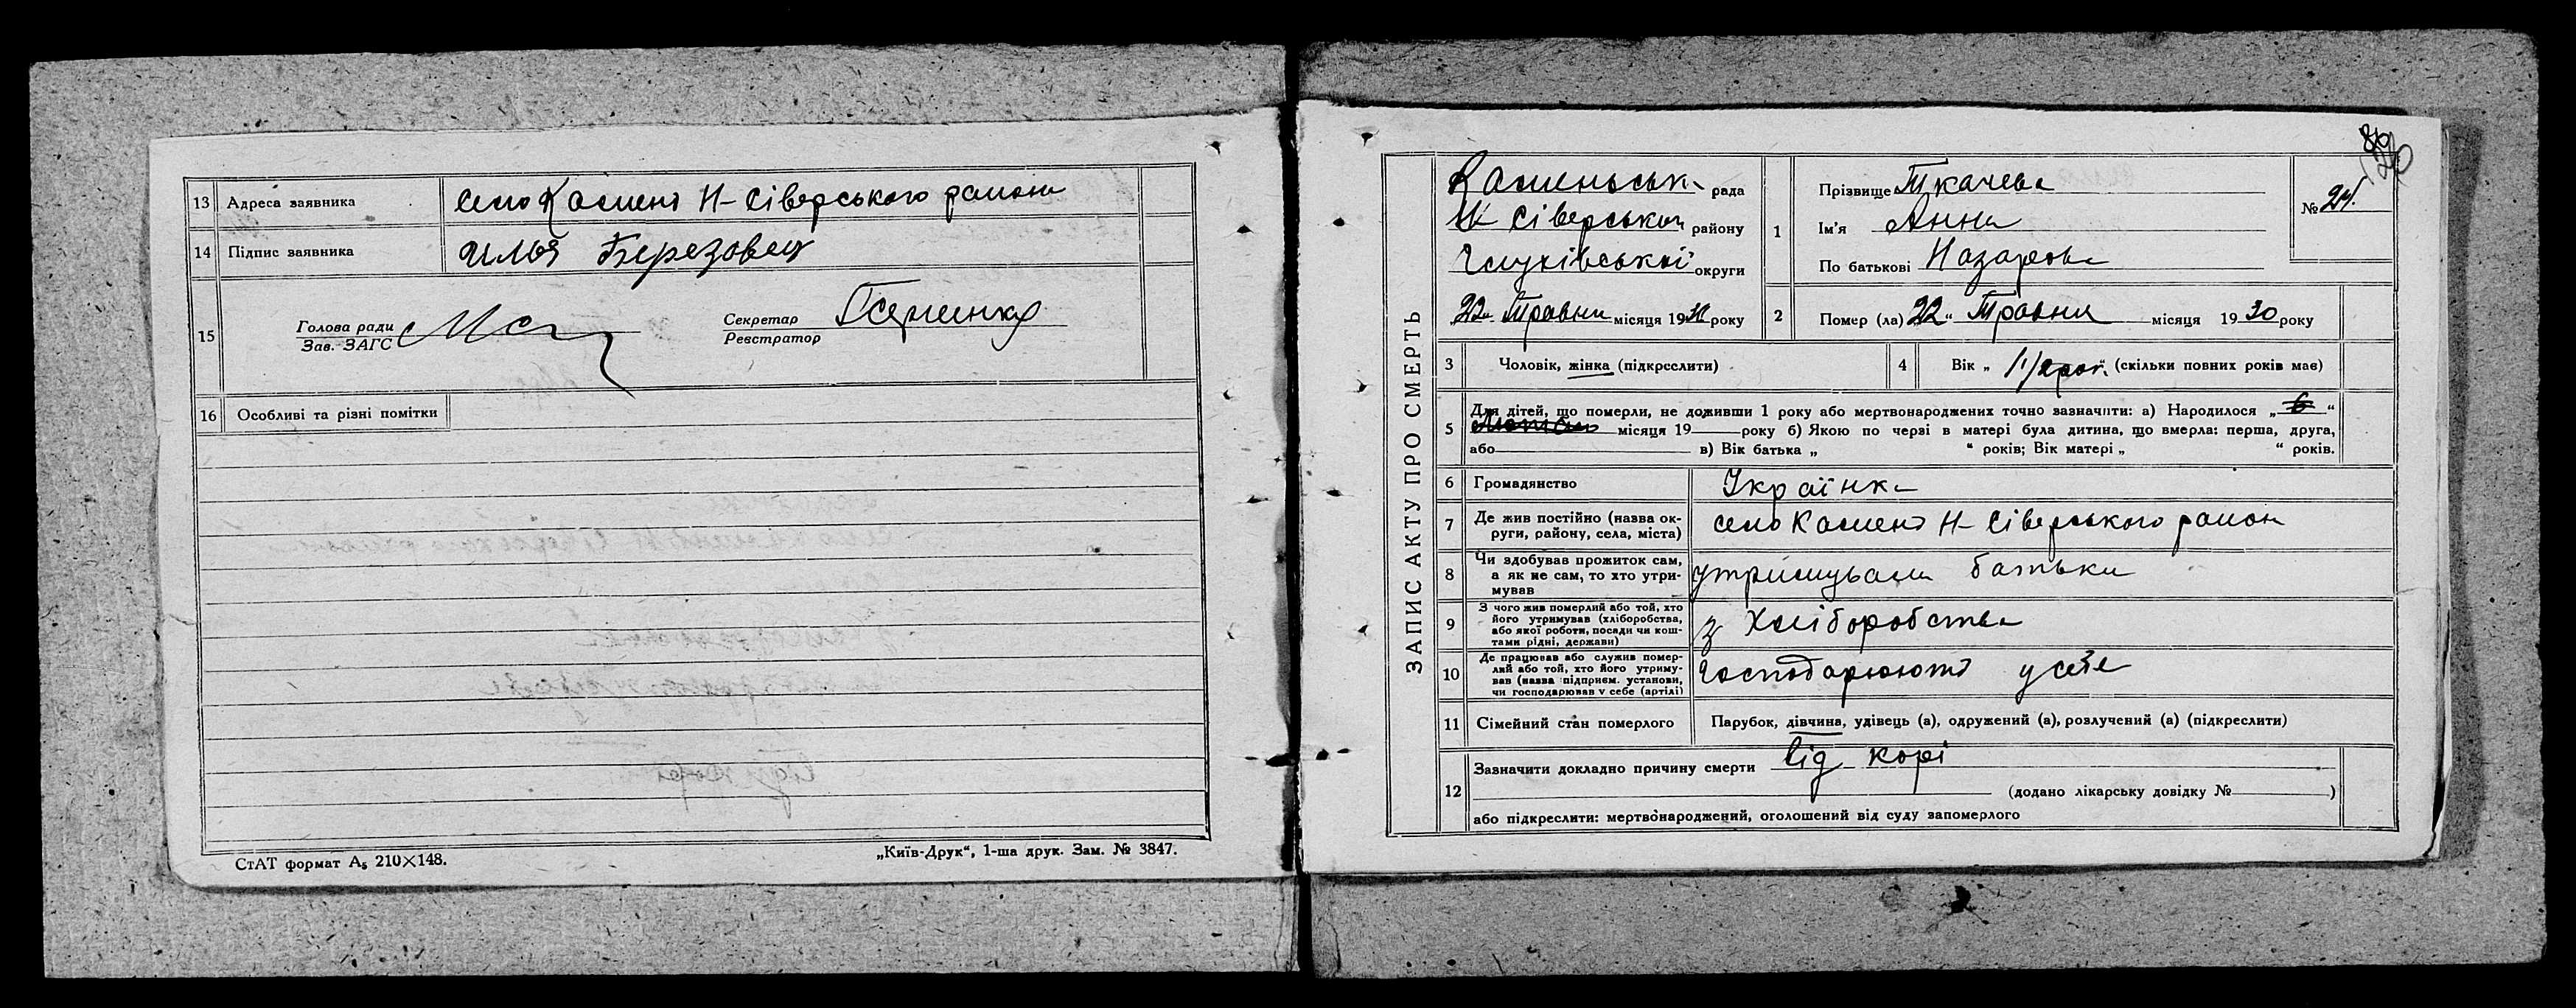 13 Адреса заявника село Камень Н-Сіверського району
14 Підпис заявника Илья Березовец
15 Голова ради
Зав. ЗАГС
Секретар
Реєстратор
16 Особливі та різні помітки
СтАТ формат А5 210×148.
„Київ-Друк“, 1-ша друк. Зам. № 3847.
ЗАПИС АКТУ ПРО СМЕРТЬ
Каменьська рада
Н Сіверськог району
Глухівської округи
22 Травня місяця 1930 року
1 Прізвище Ткачева
Ім'я Анна
По батькові Назарова
№ 24.
2 Помер (ла) 22 “ Травня місяця 19 30 року
3 Чоловік, жінка (підкреслити)
4 Вік „ “ (скільки повних років має)
5 Для дітей, що померли, не доживши 1 року або мертвонароджених точно зазначити: а) Народилося „ 6 “
місяця 19 року б) Якою по черзі в матері була дитина, що вмерла: перша, друга,
або в) Вік батька „ “ років; Вік матері „ “ років.
6 Громадянство Українка
7 Де жив постійно (назва ок-
руги, району, села, міста) село Камень Н-Сіверського район
8 Чи здобував прожиток сам,
а як не сам, то хто утри-
мував утримували батьки
9 З чого жив померлий або той, хто
його утримував (хліборобства,
або якої роботи, посади чи кош-
тами рідні, держави) з Хліборобства
10 Де працював або служив помер-
лий або той, хто його утриму-
вав (назва підприєм. установи,
чи господарював у себе (артілі) господарюють у себе
11 Сімейний стан померлого Парубок, дівчина, удівець (а), одружений (а), розлучений (а) (підкреслити)
12 Зазначити докладно причину смерти від корі
(додано лікарську довідку № )
або підкреслити: мертвонароджений, оголошений від суду запомерлого